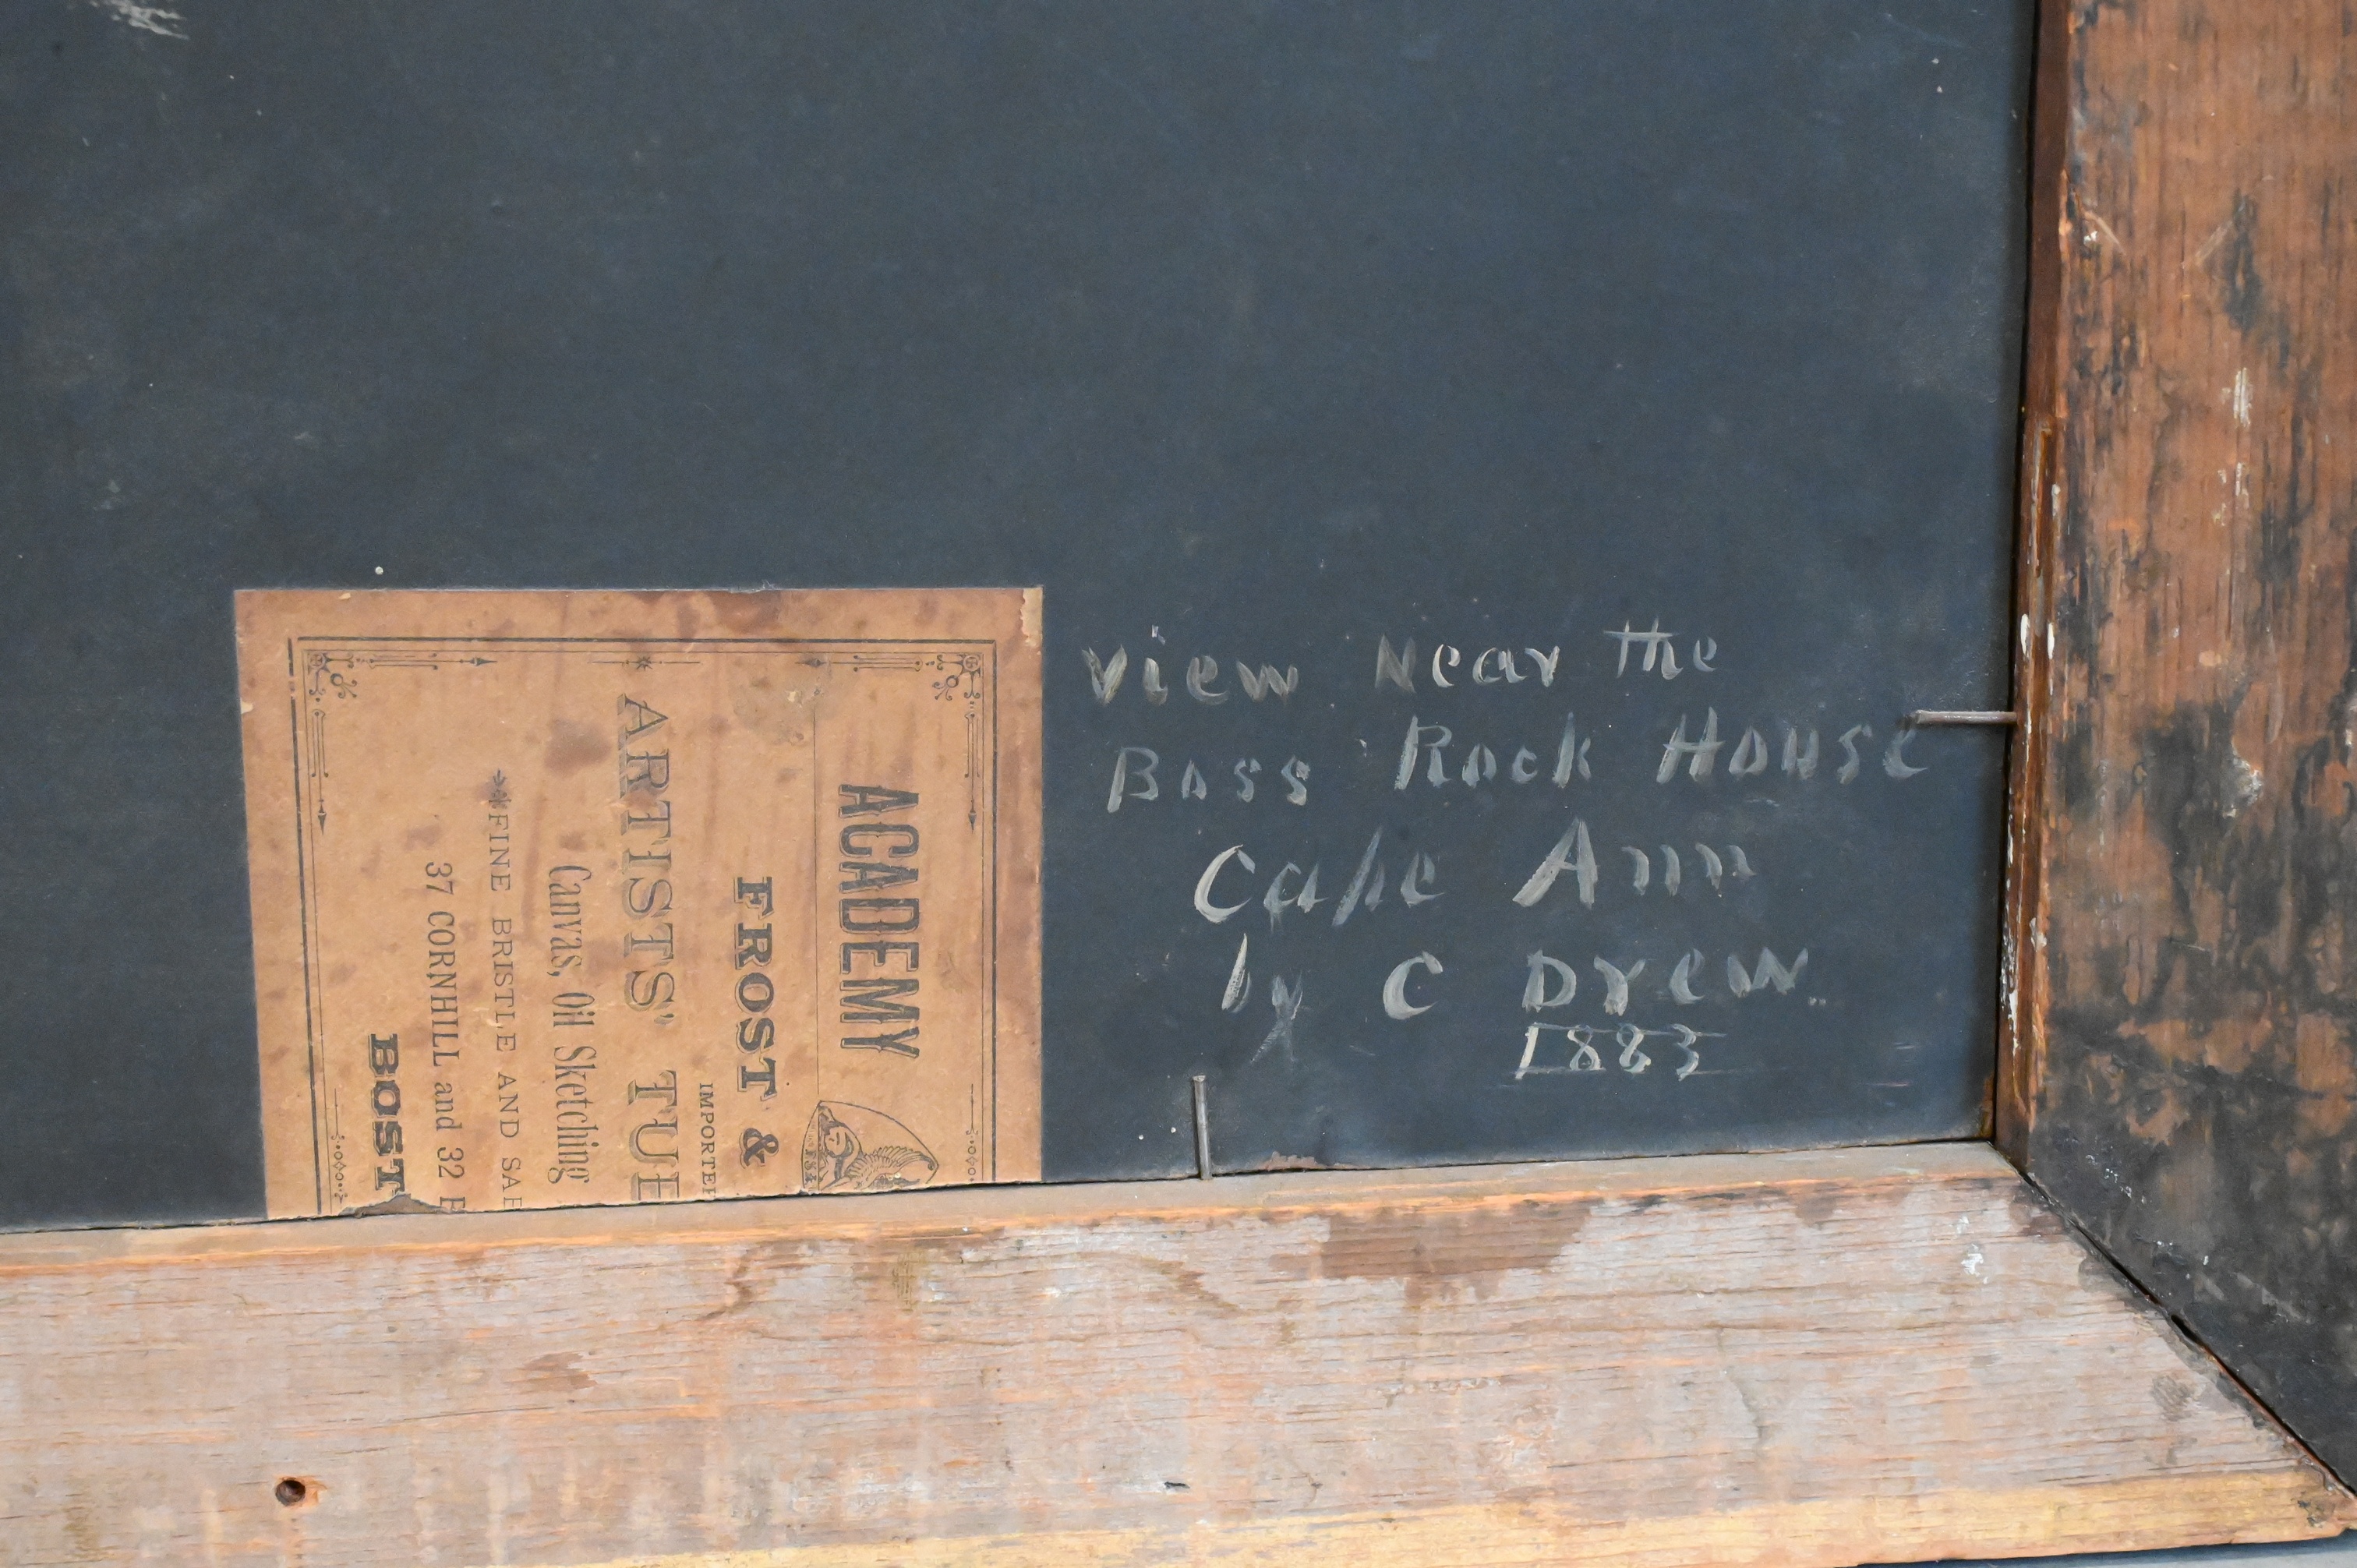 ACADEMY
FROST &
IMPORTE
ARTISTS' TUB
Canvas, Oil Sketching
FINE BRISTLE AND SA
37 CORNHILL and 32
BOST
View Near the
Bass Rock House
Cape Ann
by C Drew
1883